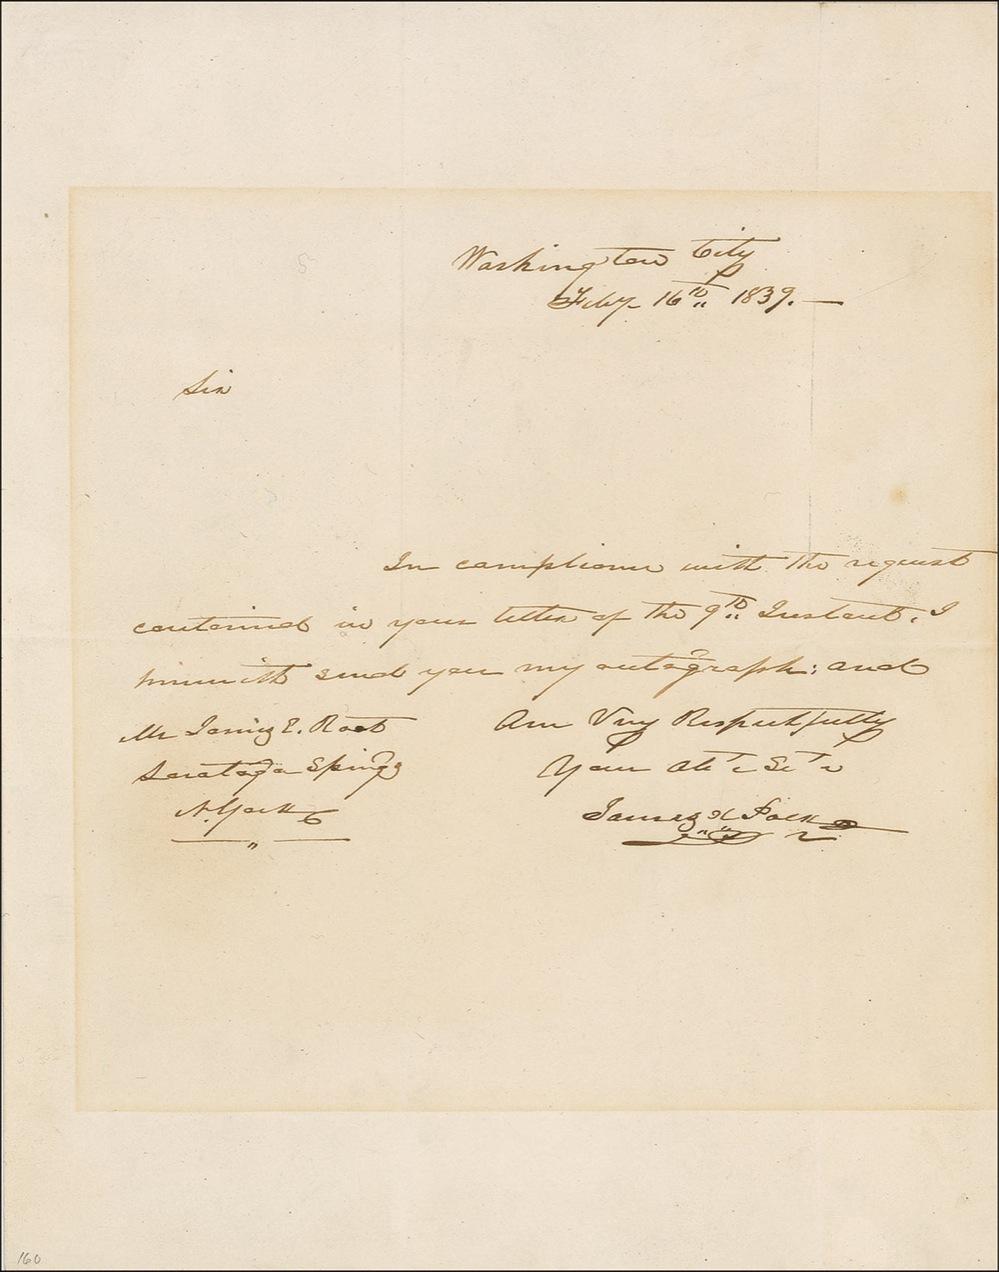 Washington City
Feby 16th 1839.—
Sir
In compliance with the request
contained in your letter of the 9th Instant, I
herewith send you my autograph: and
Am Very Respectfully
Your Obt Svt
James K. Polk
Mr James E. Root
Saratoga Springs
N. York
160